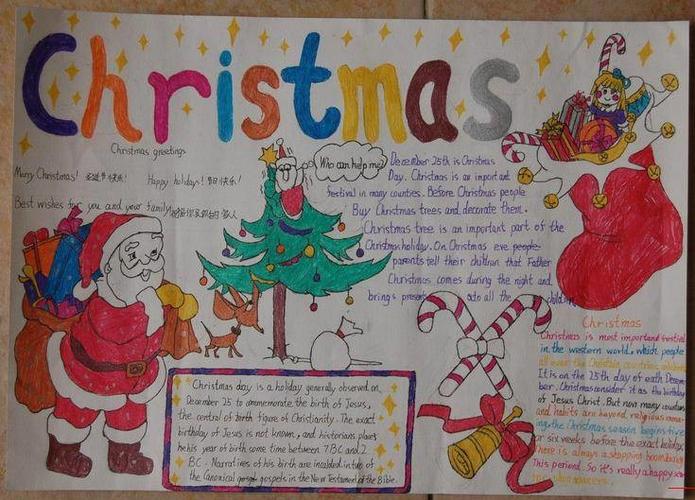 Christmas
Christmas greetings
Merry Christmas! 圣诞节快乐!
Happy holidays! 节日快乐!
Best wishes for you and your family
Who can help me?
December 25th is Christmas
Day. Christmas is an important
festival in many counties. Before Christmas people
Buy Christmas trees and decorate them.
Christmas tree is an important part of the
Christmas holiday. On Christmas eve people
parents tell their children that Father
Christmas comes during the night and
brings present to all the
Christmas day is a holiday generally observed on
December 25 to commemorate the birth of Jesus,
the central of birth figure of Christianity. The exact
birthday of Jesus is not known, and historians places
his year of birth some time between 7BC and 2
BC. Narratives of his birth are included in
the Canonical gospels in the New Testament of the Bible.
Christmas
Christmas is most important festival
in the western world, which people
all over the Christian countries
It is on the 25th day of each Decem
ber. Christmas consider it as the birthday
of Jesus Christ. But now many
and habits are beyond religious
ing, the Christmas season begins five
or six weeks before the exact holiday,
There is always a shopping boom
This period. So it's really a happy